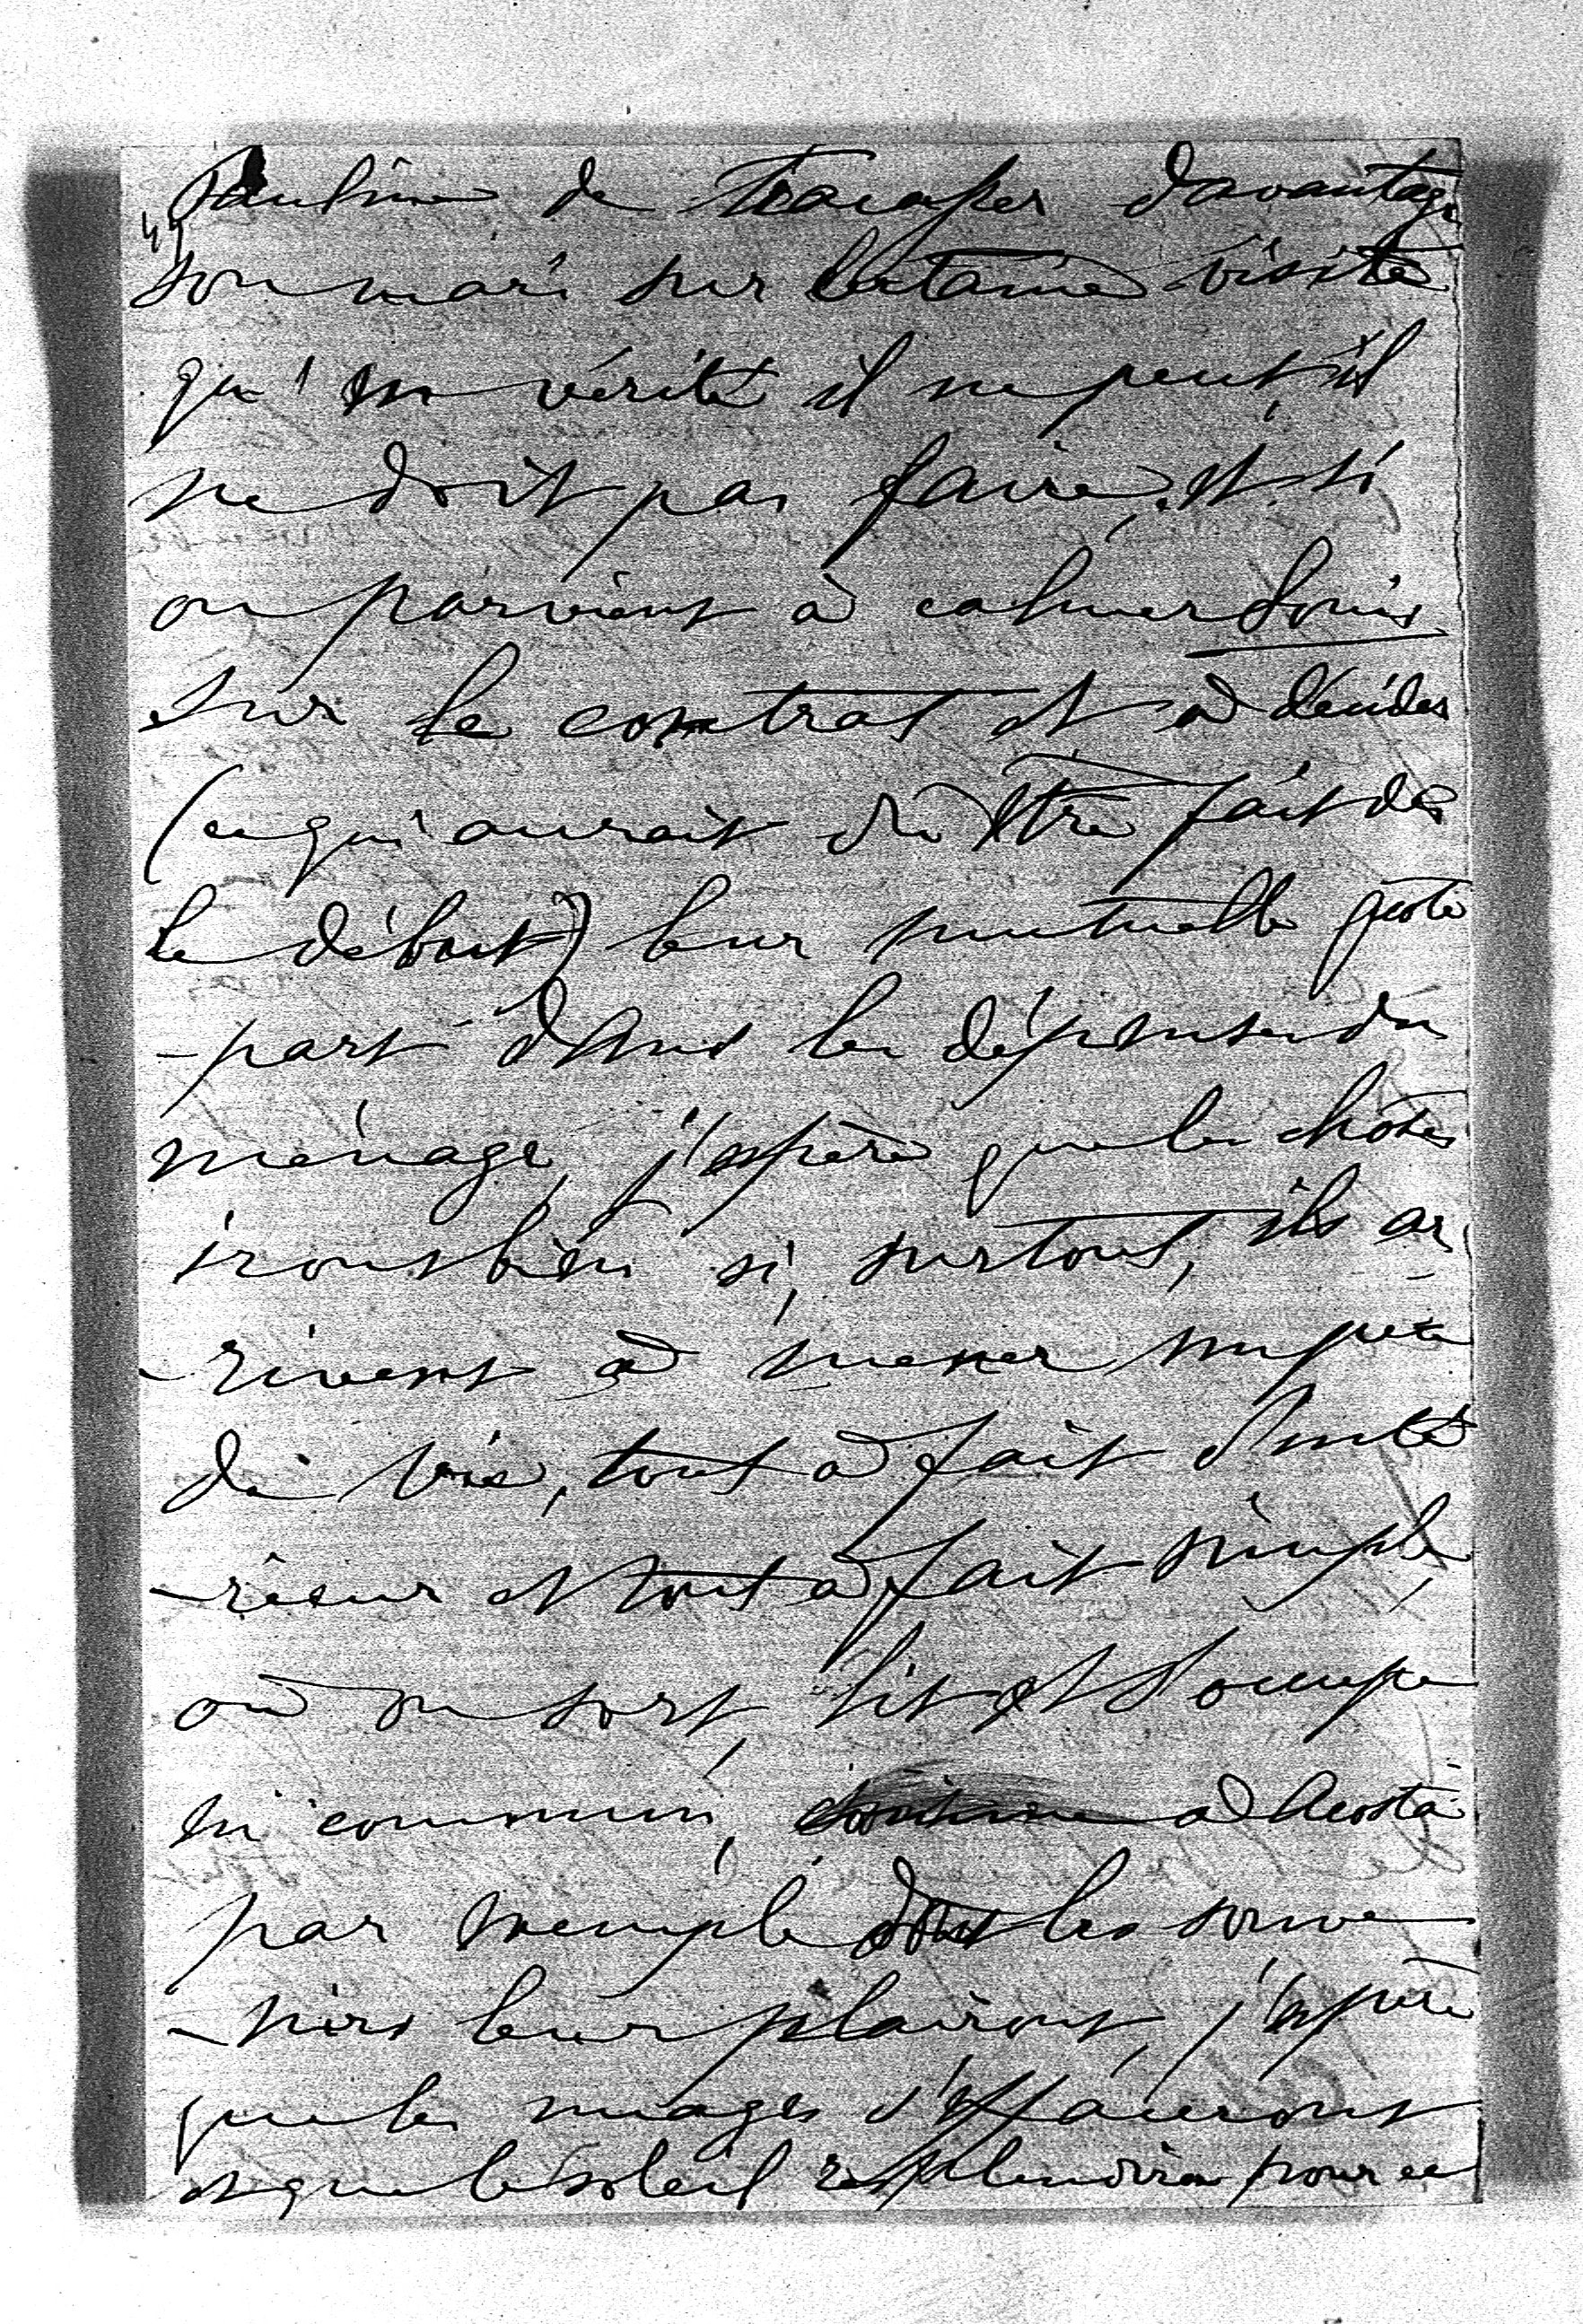 Pauline de tracasser davantage
son mari sur certaine visite
qu'en vérité il ne peut, il
ne doit pas faire, et si
on parvient à calmer Louis
sur le contrat et à décider
(ce qui aurait dû être fait dès
le début) leur mutuelle quote
-part dans les dépenses du
ménage, j'espère que les choses
iront bien si, surtout, ils ar
-rivent à mener un genre
de vie, tout à fait d'inté
-rieur et tout à fait simple,
où on sort, lit et s'occupe
en commun, à Acosta
par exemple dont les souve
-nirs leur plairont, j'espère
que les nuages s'effaceront
et que le soleil resplendira pour ce